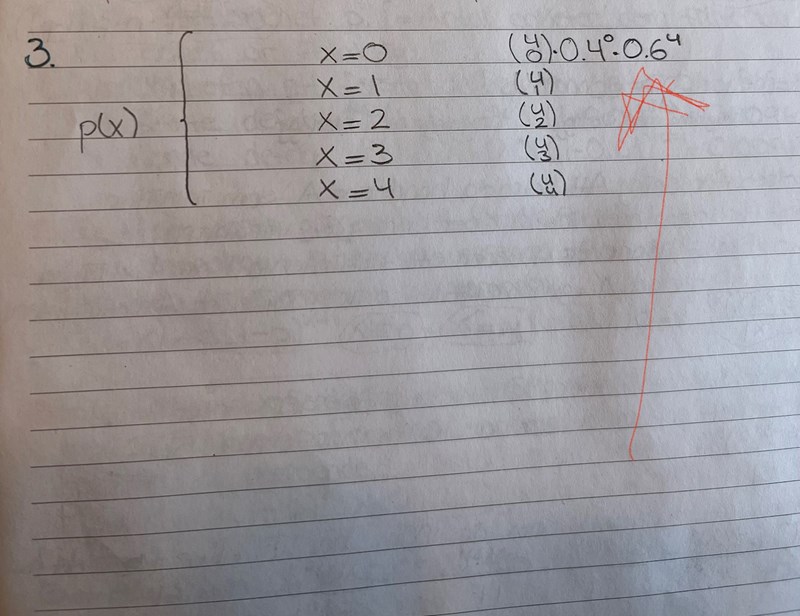 3.
x=0 (4 0)·0.4⁰·0.6⁴
x=1 (4 1)
p(x) x=2 (4 2)
x=3 (4 3)
x=4 (4 4)